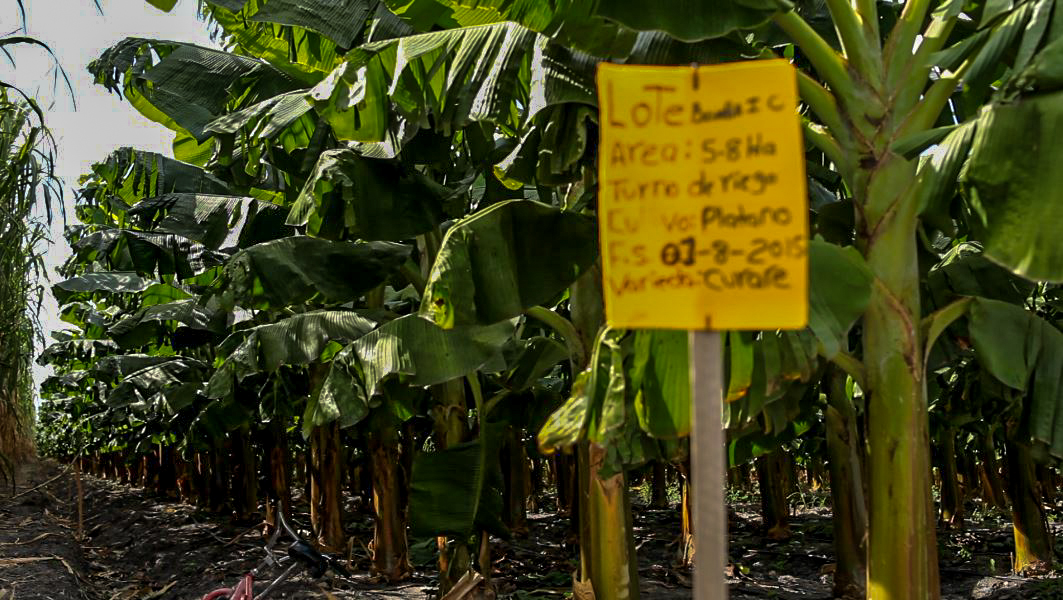 LoTe Banda I C
Area: 5-8 Ha
Turno de riego
Cultivo: Platano
F.S. 01-8-2015
Varieda: Curare